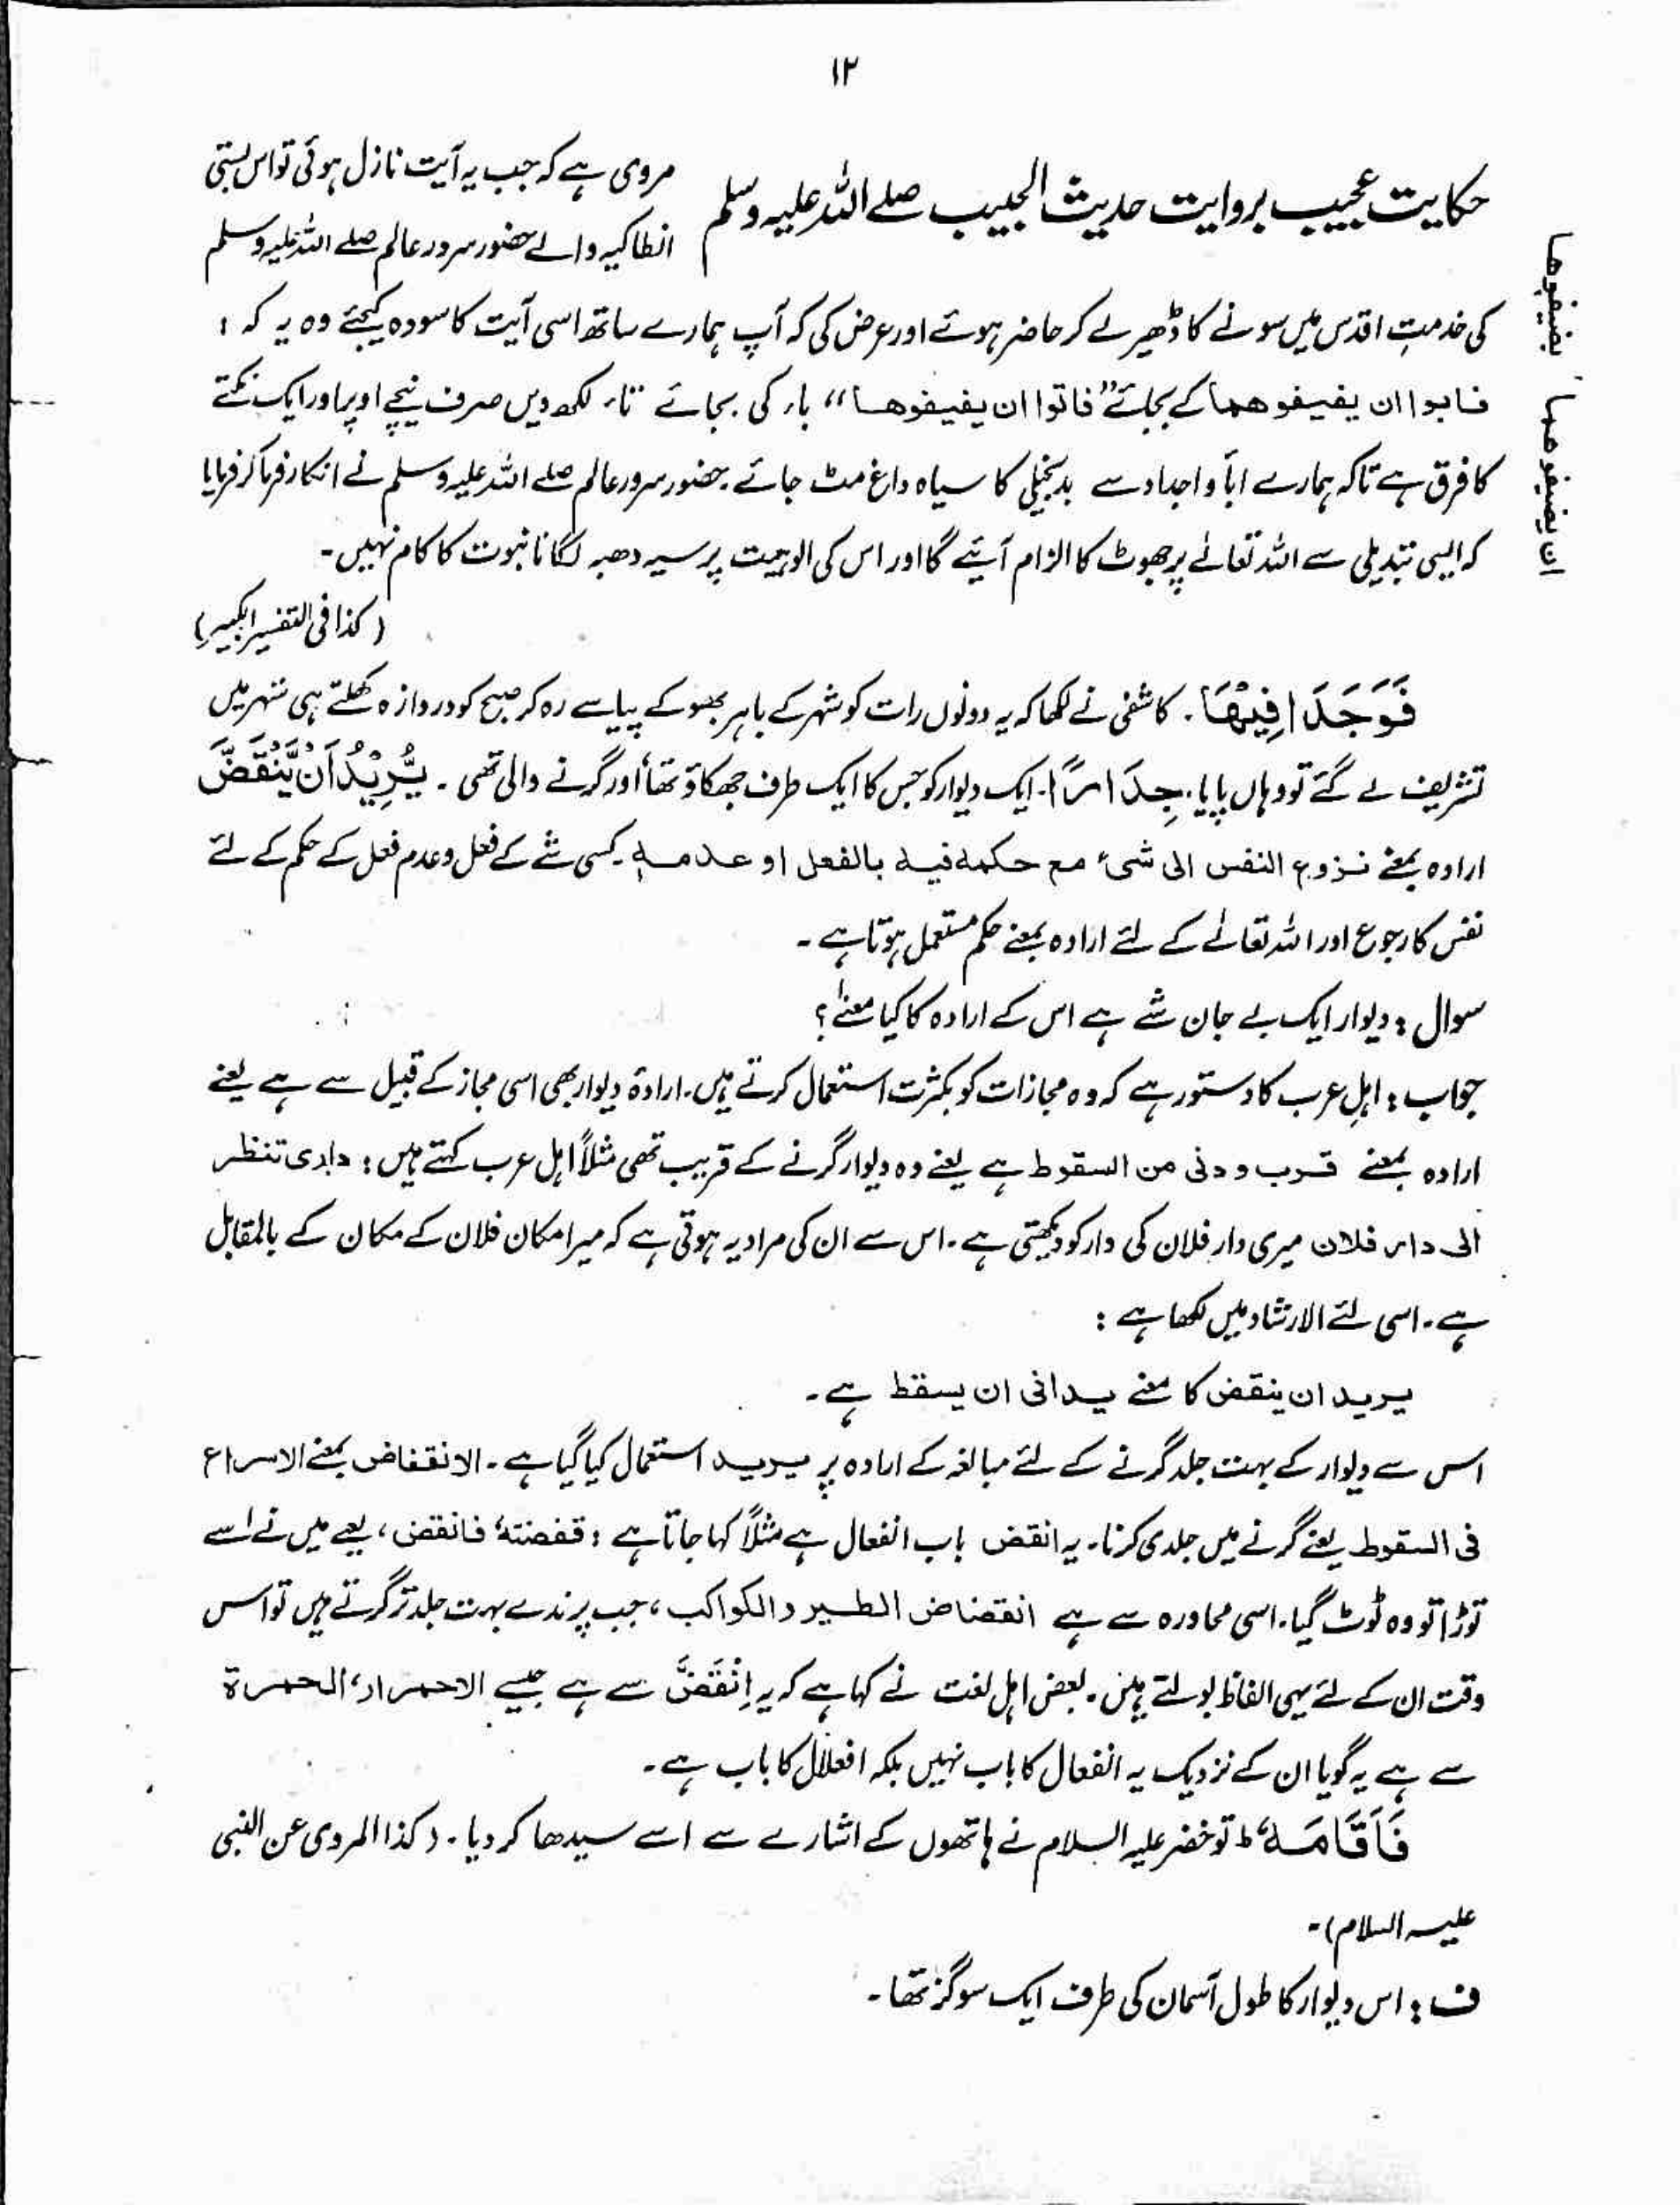 ۱۲
حکایت عجیب بروایت حدیث الحبیب صلے اللہ علیہ وسلم
مروی ہے کہ جب یہ آیت نازل ہوئی تو اس بستی
انطاکیہ والے حضور سرور عالم صلے اللہ علیہ وسلم
کی خدمتِ اقدس میں سونے کا ڈھیر لے کر حاضر ہوئے اور عرض کی کہ آپ ہمارے ساتھ اسی آیت کا سودہ کیجئے وہ یہ کہ :
فابوا ان یفیفوهما کے بجائے "فاتوا ان یفیفوھا" باء کی بجائے تاء لکھ دیں صرف نیچے اوپر اور ایک نکتے
کا فرق ہے تاکہ ہمارے اباؑ و اجداد سے بدبخیلی کا سیاہ داغ مٹ جائے۔ حضور سرور عالم صلے اللہ علیہ وسلم نے انکار فرما کر فرمایا
کہ ایسی تبدیلی سے اللہ تعالےٰ پر جھوٹ کا الزام آئیے گا اور اس کی الوہیت پر سیہ دھبہ لگانا نبوت کا کام نہیں۔
(کذا فی التفسیر الکبیر)
فَوَجَدَا فِیْھَا۔ کاشفی نے لکھا کہ یہ دونوں رات کو شہر کے باہر بھوکے پیاسے رہ کر صبح کو دروازہ کھلتے ہی شہر میں
تشریف لے گئے تو وہاں پایا۔ جِدَارًا۔ ایک دیوار کو جس کا ایک طرف جھکاؤ تھا اور گرنے والی تھی۔ یُّرِیْدُ اَنْ یَّنْقَضَّ
ارادہ بمعنے نزوع النفس الی شیٔ مع حکمه فیه بالفعل او عدمه۔ کسی شے کے فعل و عدم فعل کے حکم کے لئے
نفس کا رجوع اور اللہ تعالےٰ کے لئے ارادہ بمعنے حکم مستعمل ہوتا ہے۔
سوال : دیوار ایک بے جان شے ہے اس کے ارادہ کا کیا معنےٰ؟
جواب : اہلِ عرب کا دستور ہے کہ وہ مجازات کو بکثرت استعمال کرتے ہیں۔ ارادۃ دیوار بھی اسی مجاز کے قبیل سے ہے یعنے
ارادہ بمعنے قرب و دنی من السقوط ہے یعنے وہ دیوار گرنے کے قریب تھی مثلاً اہل عرب کہتے ہیں : داری تنظر
الی دار فلان میری دار فلان کی دار کو دیکھتی ہے۔ اس سے ان کی مراد یہ ہوتی ہے کہ میرا مکان فلان کے مکان کے بالمقابل
ہے۔ اسی لئے الارشاد میں لکھا ہے :
یرید ان ینقض کا معنے یدانی ان یسقط ہے۔
اس سے دیوار کے بہت جلد گرنے کے لئے مبالغہ کے ارادہ پر یرید استعمال کیا گیا ہے۔ الانقضاض بمعنے الاسراع
فی السقوط یعنے گرنے میں جلدی کرنا۔ یہ انقض باب انفعال ہے مثلاً کہا جاتا ہے : قفضتهٗ فانقض، یعے میں نے اسے
توڑا تو وہ ٹوٹ گیا۔ اسی محاورہ سے ہے انقضاض الطیر والکواکب، جب پرندے بہت جلد تر گرتے ہیں تو اس
وقت ان کے لئے یہی الفاظ بولتے ہیں۔ بعض اہل لغت نے کہا ہے کہ یہ اِنْقَضَّ سے ہے جیسے الاحمرار، الحمرۃ
سے ہے یہ گویا ان کے نزدیک یہ انفعال کا باب نہیں بلکہ افعلال کا باب ہے۔
فَاَقَامَهٗ ط تو خضر علیہ السلام نے ہاتھوں کے اشارے سے اسے سیدھا کر دیا۔ (کذا المروی عن النبی
علیہ السلام)۔
ف : اس دیوار کا طول آسمان کی طرف ایک سو گز تھا۔
ان یضیفوھما یضیفوھا